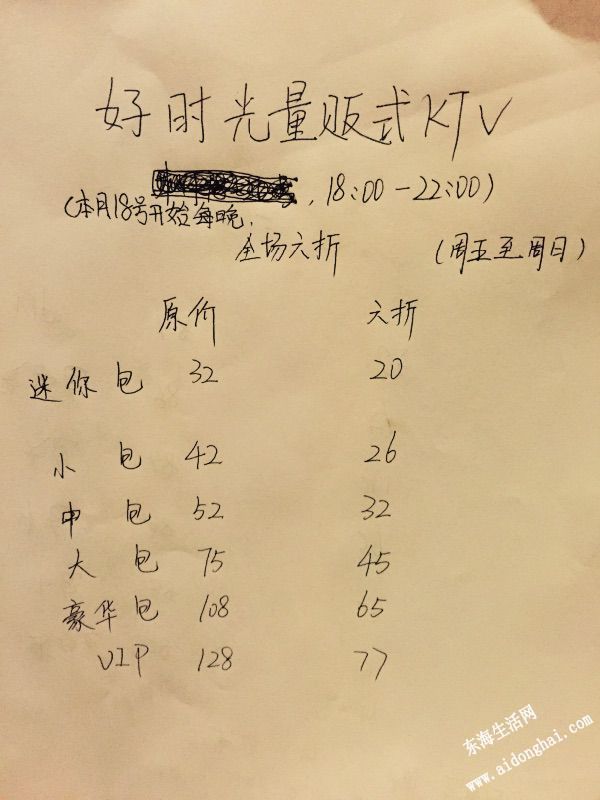 好时光量贩式KTV
(本月18号开始每晚, 18:00-22:00)
全场六折 (周五至周日)
原价 六折
迷你包 32 20
小包 42 26
中包 52 32
大包 75 45
豪华包 108 65
VIP 128 77
东海生活网
www.aidonghai.com